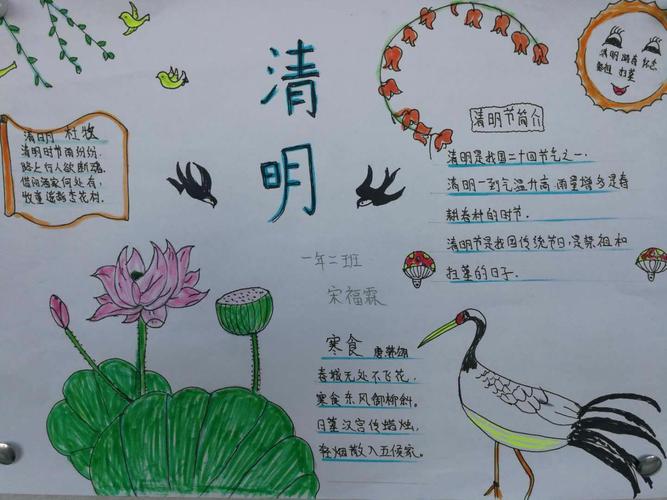 清明
清明 杜牧
清明时节雨纷纷，
路上行人欲断魂。
借问酒家何处有，
牧童遥指杏花村。
清明节简介
清明是我国二十四节气之一。
清明一到气温升高，雨量增多是春
耕春种的时节。
清明节是我国传统节日，是祭祖和
扫墓的日子。
一年二班
宋福霖
寒食 唐 韩翃
春城无处不飞花，
寒食东风御柳斜。
日暮汉宫传蜡烛，
轻烟散入五侯家。
扫墓